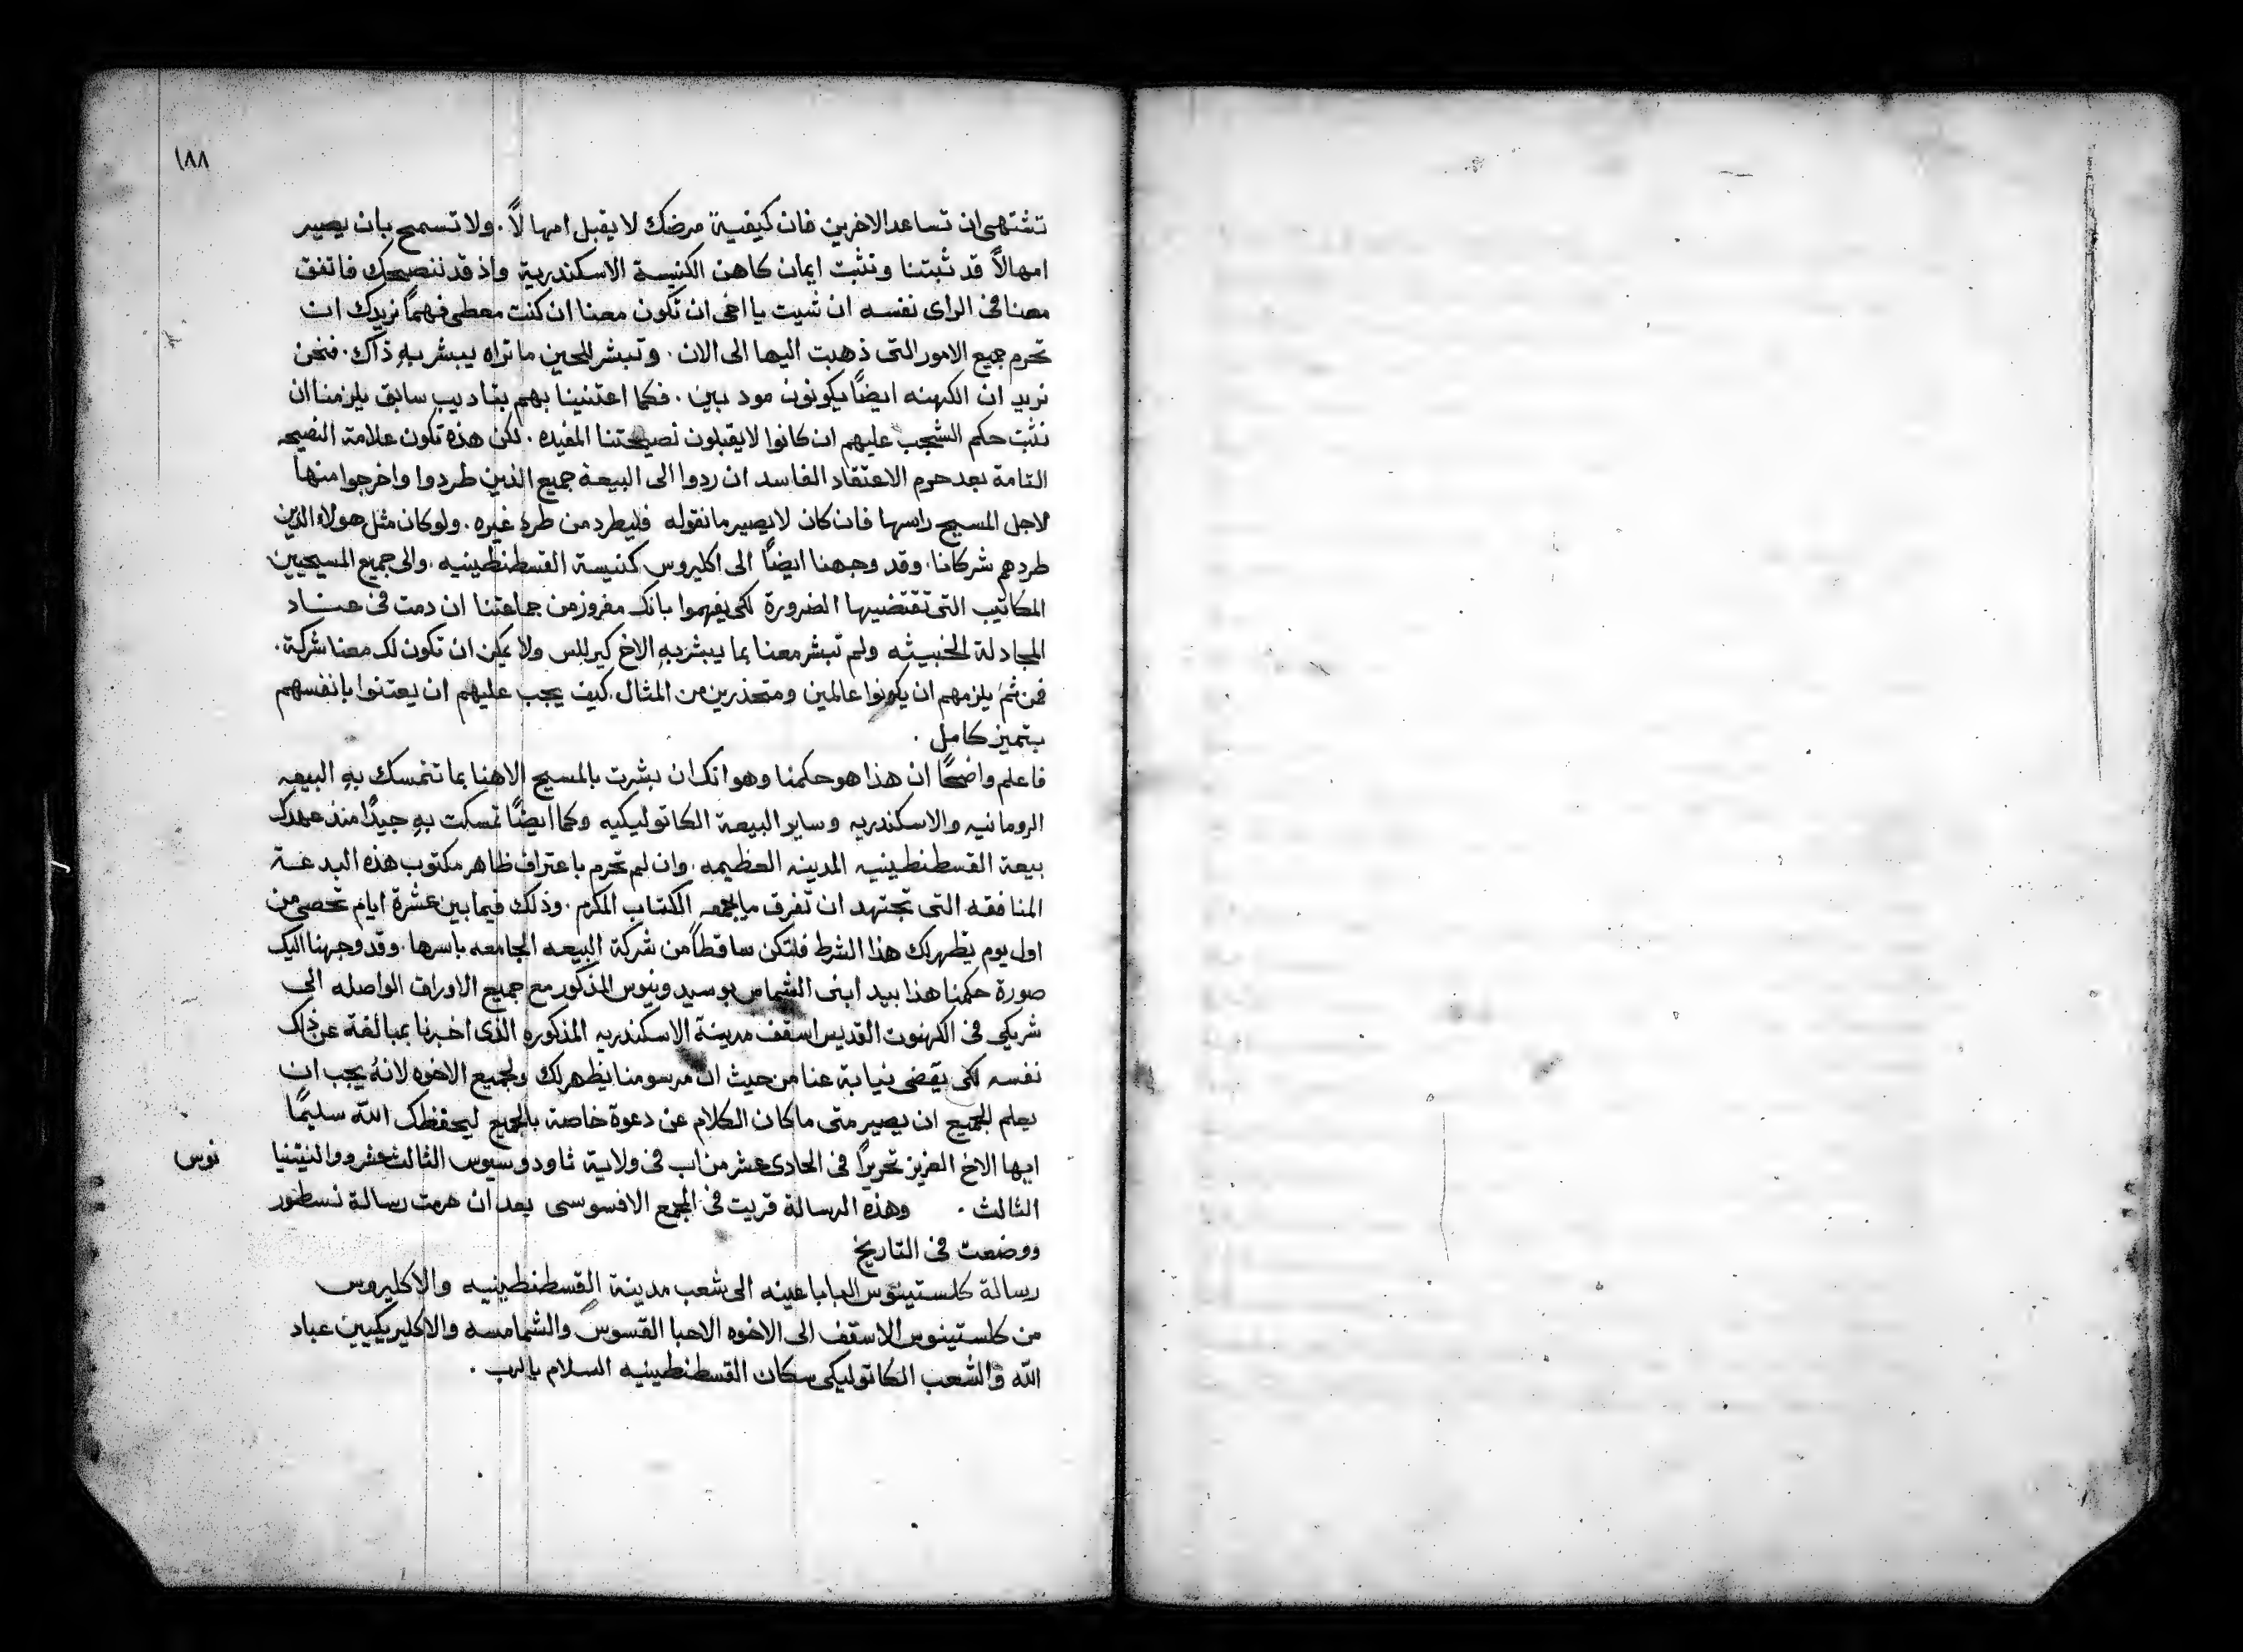 ١٨٨
تشتهى ان تساعد الاخرين فان كيفية مرضك لا يقبل امهالاً . ولا تسمح بان يصير
امهالاً قد ثبتنا ونثبت ايمان كاهن الكنيسة الاسكندرية واذ قد ننصحك فاتفق
معنا فى الراى نفسه ان شيت يا اخى ان تكون معنا ان كنت معطى فهمًا نريدك ان
تحرم جميع الامور التى ذهبت اليها الى الان . وتبشر للحين ما تراه يبشر بهِ ذاك . فنحن
نريد ان الكهنه ايضًا يكونون مودبين . فكما اعتنينا بهم بتاديب سابق يلزمنا ان
نثبت حكم الشجب عليهم ان كانوا لا يقبلون نصيحتنا المفيده . لكن هذه تكون علامة النصيحه
التامة بعد حرم الاعتقاد الفاسد ان ردوا الى البيعة جميع الذين طردوا واخرجوا منها
لاجل المسيح راسها فان كان لا يصير ما نقوله فليطرد من طرد غيره . ولو كان مثل هولاء الذين
طردهم شركانا . وقد وجهنا ايضًا الى اكليروس كنيسة القسطنطينيه . والى جميع المسيحيين
المكاتيب التى تقتضيها الضرورة لكى يفهموا بانك مفروز من جماعتنا ان دمت فى عناد
المجادلة الخبيثه ولم تبشر معنا بما يبشر بهِ الاخ كيرللس ولا يمكن ان تكون لك معنا شركة .
فمن ثم يلزمهم ان يكونوا عالمين ومتحذرين من المثال . كيف يجب عليهم ان يعتنوا بانفسهم
بتميز كامل .
فاعلم واضحًا ان هذا هو حكمنا وهو انك ان بشرت بالمسيح الاهنا بما تتمسك بهِ البيعه
الرومانيه والاسكندريه وساير البيعة الكاتوليكيه وكما ايضًا تمسكت بهِ جيدًا منذ عهدك
بيعة القسطنطينيه المدينه العظيمه . وان لم تحرم باعتراف ظاهر مكتوب هذه البدعة
المنافقه التى تجتهد ان تفرق ما يجمعه الكتاب المكرم . وذلك فيما بين عشرة ايام تحصى من
اول يوم يظهر لك هذا الشرط فلتكن ساقطاً من شركة البيعه الجامعه باسرها . وقد وجهنا اليك
صورة حكمنا هذا بيد ابنى الشماس بوسيدونيوس المذكور مع جميع الاوراق الواصله الى
شريكى فى الكهنوت القديس اسقف مدينة الاسكندريه المذكوره الذى اخبرنا بمبالغة عن ذلك
نفسه لكى يقضى نيابة عنا من حيث ان مرسومنا يظهر لك ولجميع الاخوه لانهُ يجب ان
يعلم الجميع ان يصير متى ما كان الكلام عن دعوة خاصة بالجميع ليحفظك الله سليمًا
ايها الاخ العزيز تحريرًا فى الحادى عشر من اب فى ولاية ثاودوسيوس الثالث عشر ووالنيتنيا نوس
الثالث . وهذه الرسالة قريت فى المجمع الافسوسى بعد ان حرمت رسالة نسطور
ووضعت فى التاريخ
رسالة كلستينوس البابا عينه الى شعب مدينة القسطنطينيه والاكليروس
من كلستينوس الاسقف الى الاخوه الاحبا القسوس والشمامسه والاكليريكيين عباد
الله والشعب الكاتوليكى سكان القسطنطينيه السلام بالرب .